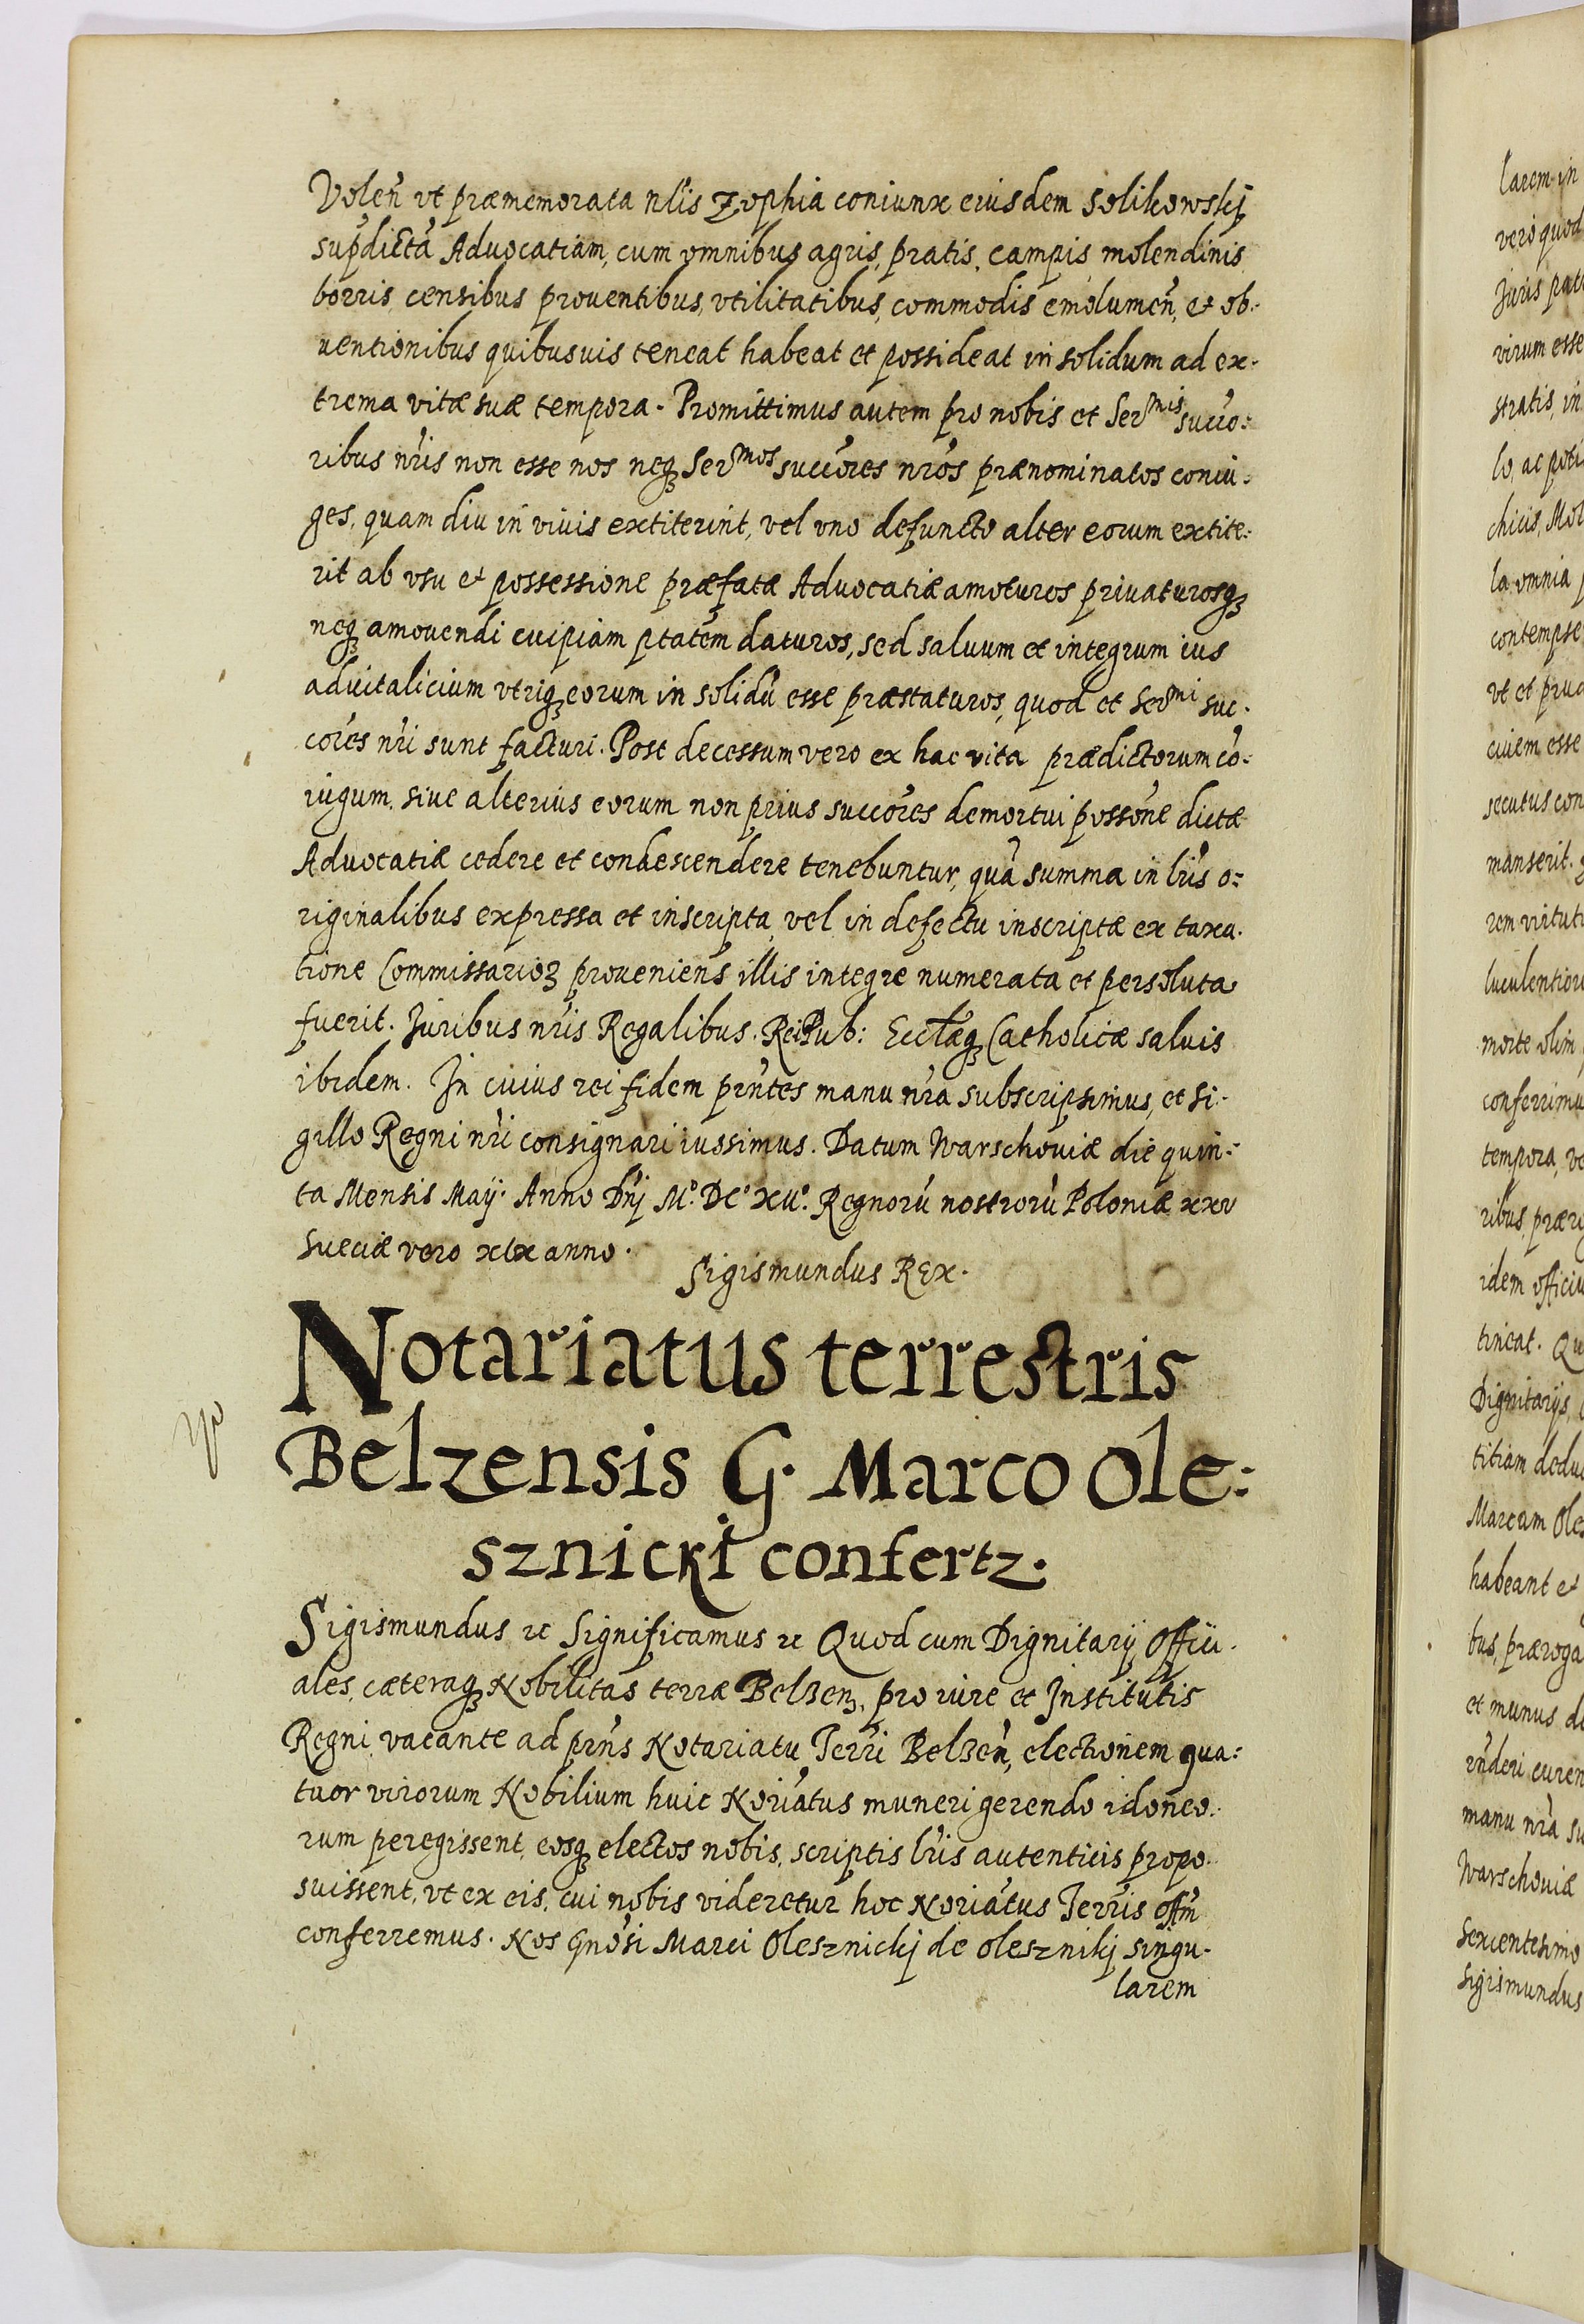 Volen̄ vt præmemorata nl̄is Zophia coniunx eiusdem Solikowskj
sup̄dictā Advocatiam, cum omnibus agris, pratis, campis, molendinis
borris, censibus prouentibus, vtilitatibus, commodis emolumen̄, et ob-
uentionibus quibusuis teneat habeat et possideat in solidum ad ex-
trema vitæ suæ tempora. Promittimus autem pro nobis et Ser^mis succo-
ribus nr̄is non esse nos neqȝ Ser^mos succōres nr̄os prænominatos coniu-
ges, quam diu in viuis extiterint, vel vno defuncto alter eorum extite-
rit ab vsu et possessione præfatæ Advocatiæ amoturos priuaturosqȝ
neqȝ amouendi cuipiam ptātem daturos, sed saluum et integrum ius
aduitalicium vtriqȝ eorum in solidū esse præstaturos, quod et Ser^mi suc-
cōres nr̄i sunt facturi. Post decessum vero ex hac vita prædictorum cō-
iugum, siue alterius eorum non prius succōres demortui possōne dictæ
Advocatiæ cedere et condescendere tenebuntur, quā summa in lr̄is o-
riginalibus expressa et inscripta, vel in defectu inscriptæ ex taxa-
tione Commissarioȝ proueniens illis integre numerata et persoluta
fuerit. Juribus nr̄is Regalibus. ReiPub: Eccl̄æqȝ Catholicæ saluis
ibidem. In cuius rei fidem prn̄tes manu nr̄a subscripsimus, et si-
gillo Regni nr̄i consignari iussimus. Datum Warschouiæ die quin-
ta Mensis Maij. Anno Dn̄j M°. DC° XV°. Regnorū nostrorū Poloniæ xxv
Sueciæ vero xix anno.
Sigismundus REx.
Notariatus terrestris
Belzensis G. Marco Ole-
sznicki confertz.
Sigismundus ꝛc Significamus ꝛc Quod cum Dignitarij, Offici-
ales, cæteraqȝ Nobilitas terræ Belzenȝ, pro iure et Institutis
Regni vacante ad prn̄s Notariatu Terr̄i Belzen̄, electionem qua-
tuor virorum Nobilium huic Nor̄iatus muneri gerendo idoneo-
rum peregissent, eosqȝ electos nobis, scriptis lr̄is autenticis propo-
suissent, vt ex eis, cui nobis videretur hoc Nor̄iatus Terr̄is offm̄
conferremus. Nos Gnōsi Marci Olesznickj de Olesznikj singu-
larem
larem in
vero quod
Juris
virum esse
stratis, in
lo, ac
chicis,
la omnia
contempse
vt et
ciuem esse
secutus con
manserit.
rem virtuti
luculentiori
morte olim
conferrimu
tempora,
ribus,
idem officiu
tineat. Qu
Dignitarijs,
titiam
Marcum Oles
habeant et
bus, præroga
et munus
curen
manu nr̄a su
Warschouiæ
Sexcentesimo
Sigismundus